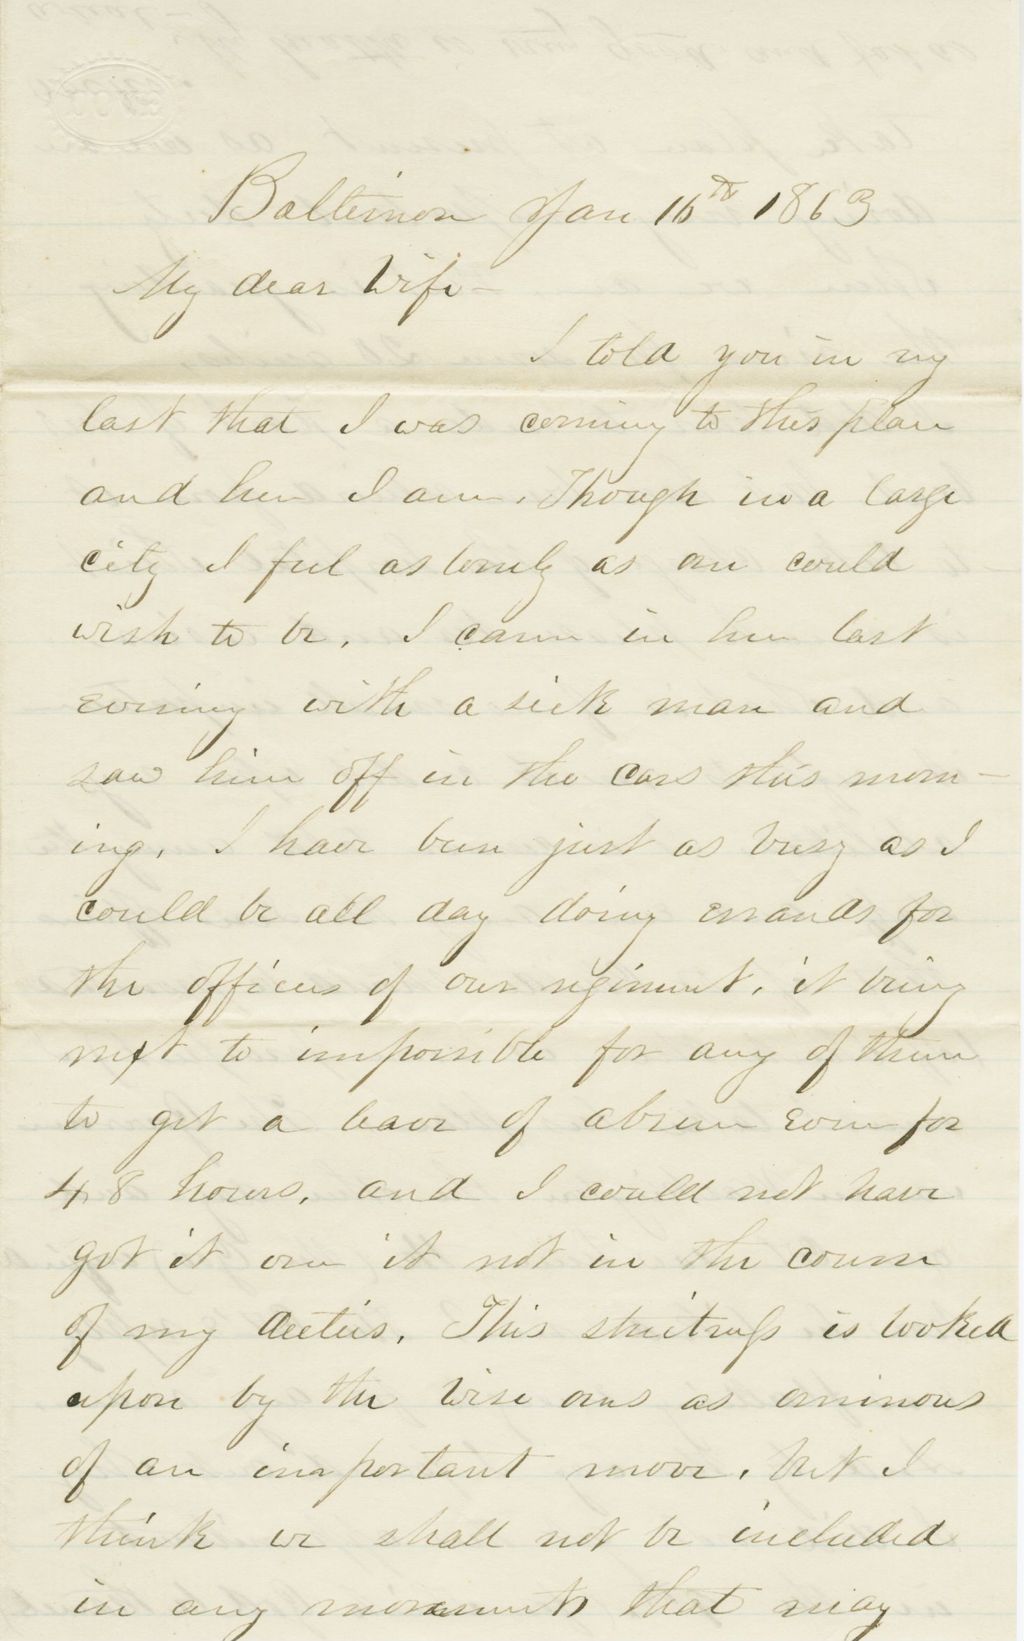 Baltimore Jan 16th 1863
My dear Wife -
I told you in my
last that I was coming to this place
and here I am. Though in a large
city I feel as lonely as one could
wish to be. I came in here last
evening with a sick man and
saw him off in the cars this morn-
ing. I have been just as busy as I
could be all day doing errands for
the officers of our regiment. it being
next to impossible for any of them
to get a leave of absence even for
48 hours, and I could not have
got it were it not in the course
of my duties. This strictness is looked
upon by the wise ones as ominous
of an important move, but I
think we shall not be included
in any movements that may